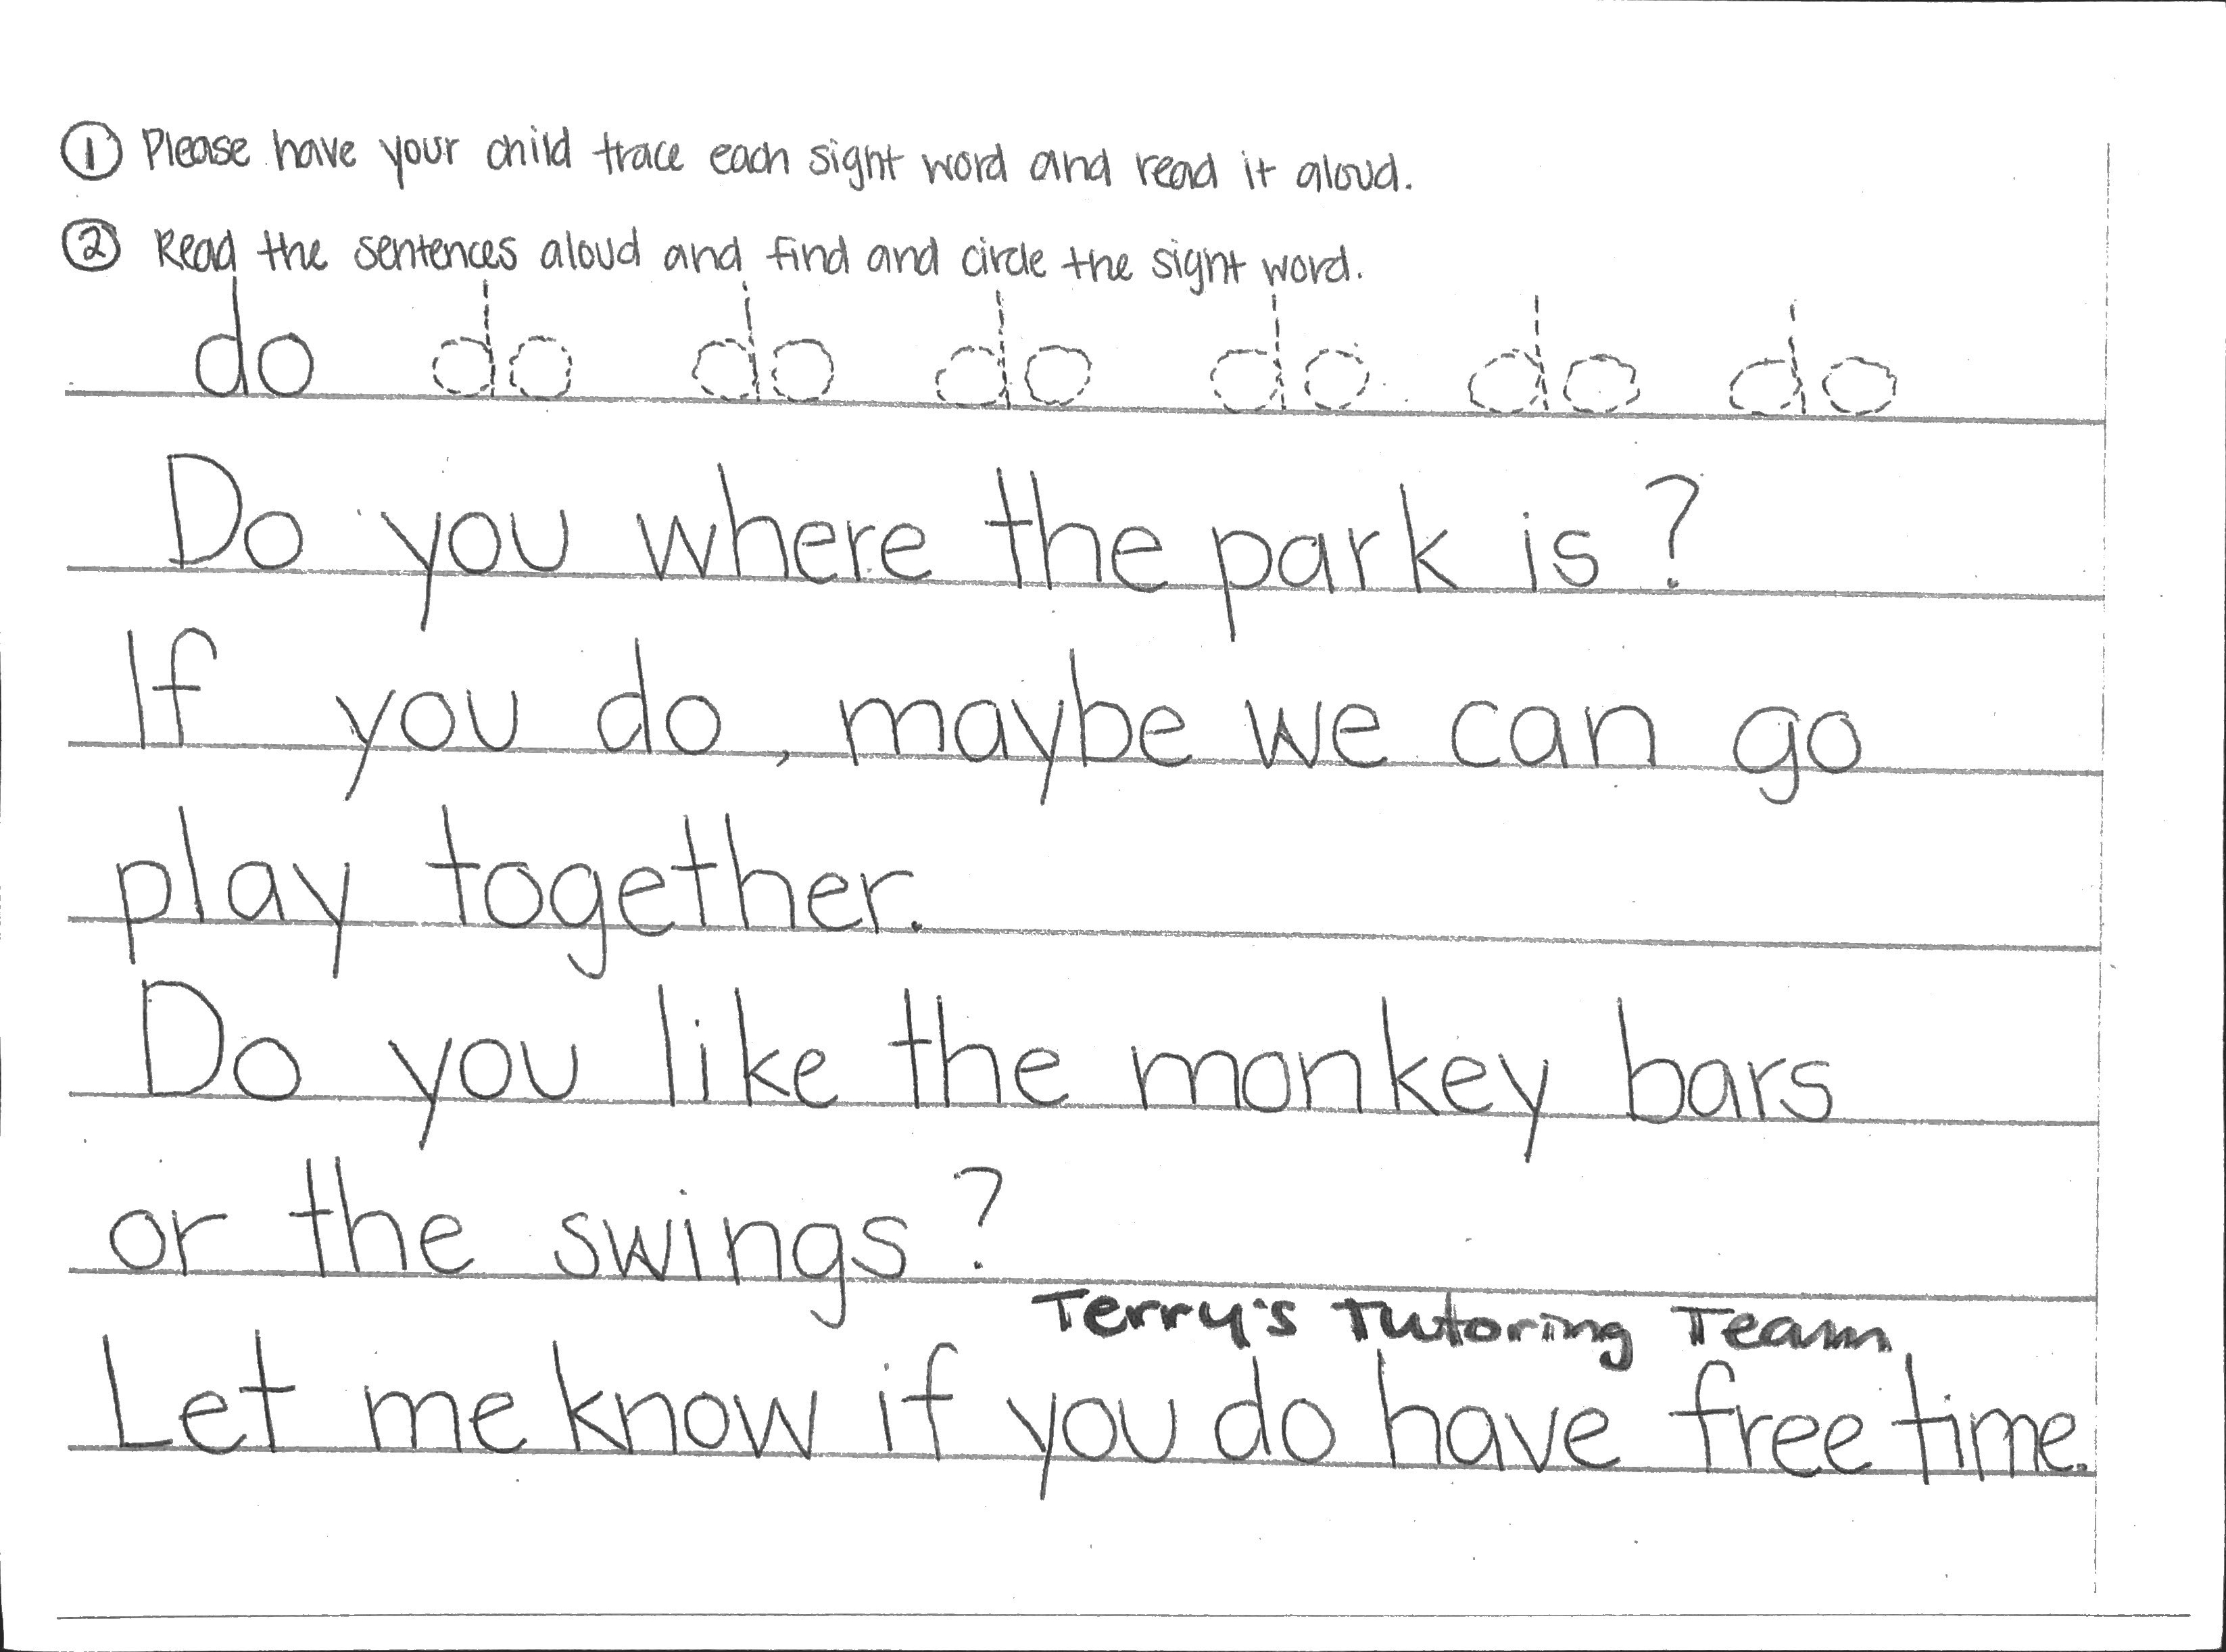 ① Please have your child trace each sight word and read it aloud.
② Read the sentences aloud and find and circle the sight word.
do do do do do do do
Do you where the park is?
If you do, maybe we can go
play together.
Do you like the monkey bars
or the swings?
Terry's Tutoring Team
Let me know if you do have free time.